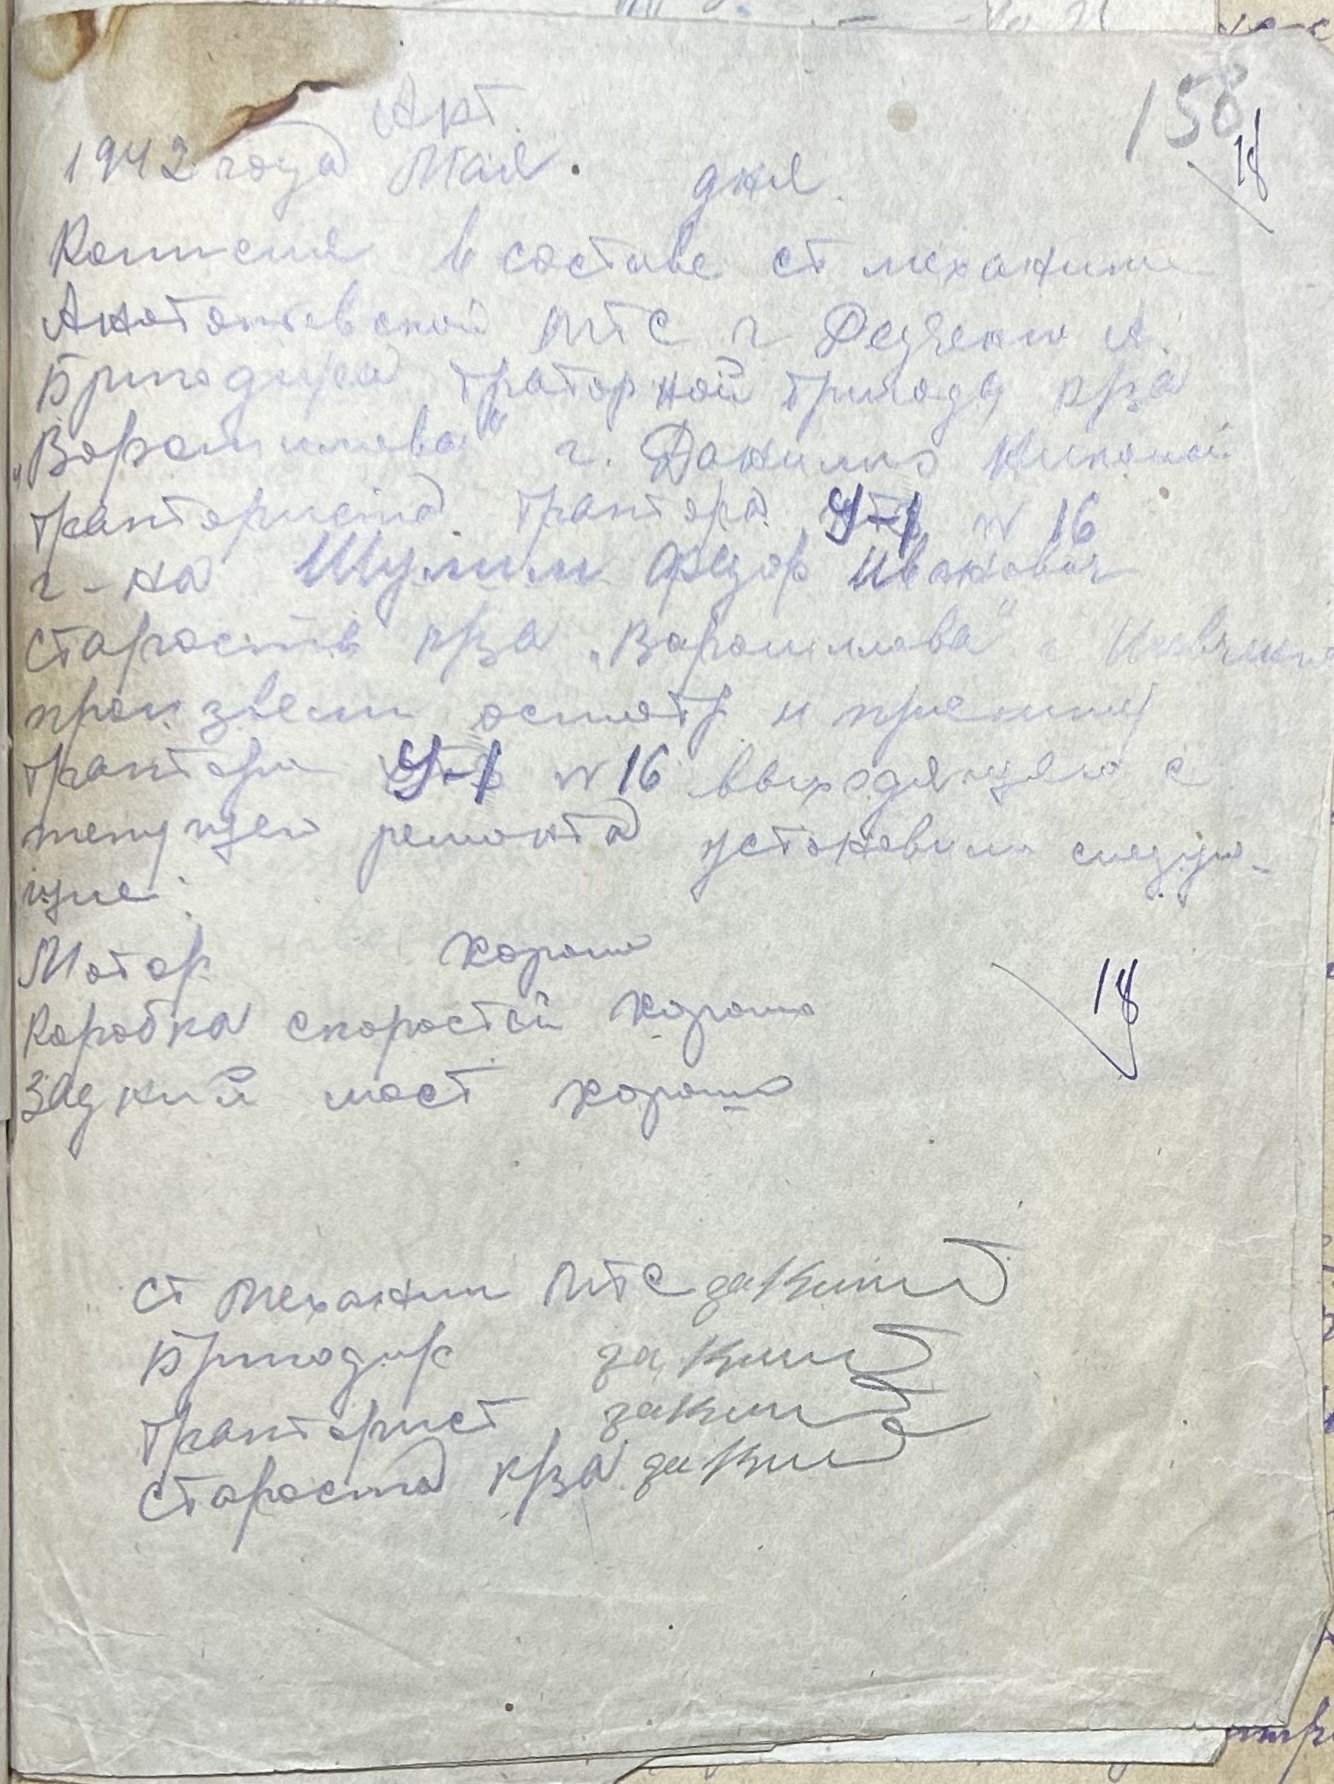 158
18
Акт.
1942 года Мая. дня.
Комисия в составе ст механика
МТС г Дедченко А.
Бригадира траторной бригады крза
„Ворошилова“ г. Данилко
тракториста трактора У-1 № 16
г-на Шулим Федор Иванович
староств крза „Ворошилова“ г Шевченко
произвели осмотр и приемку
трактора У-1 № 16 выходящего с
текущего ремонта установили следую-
щие:
Мотор хорошо
Коробка скоростей хорошо
Задний мост хорошо
18
Ст Механик МТС
Бригадир
Тракторист
Староста крза